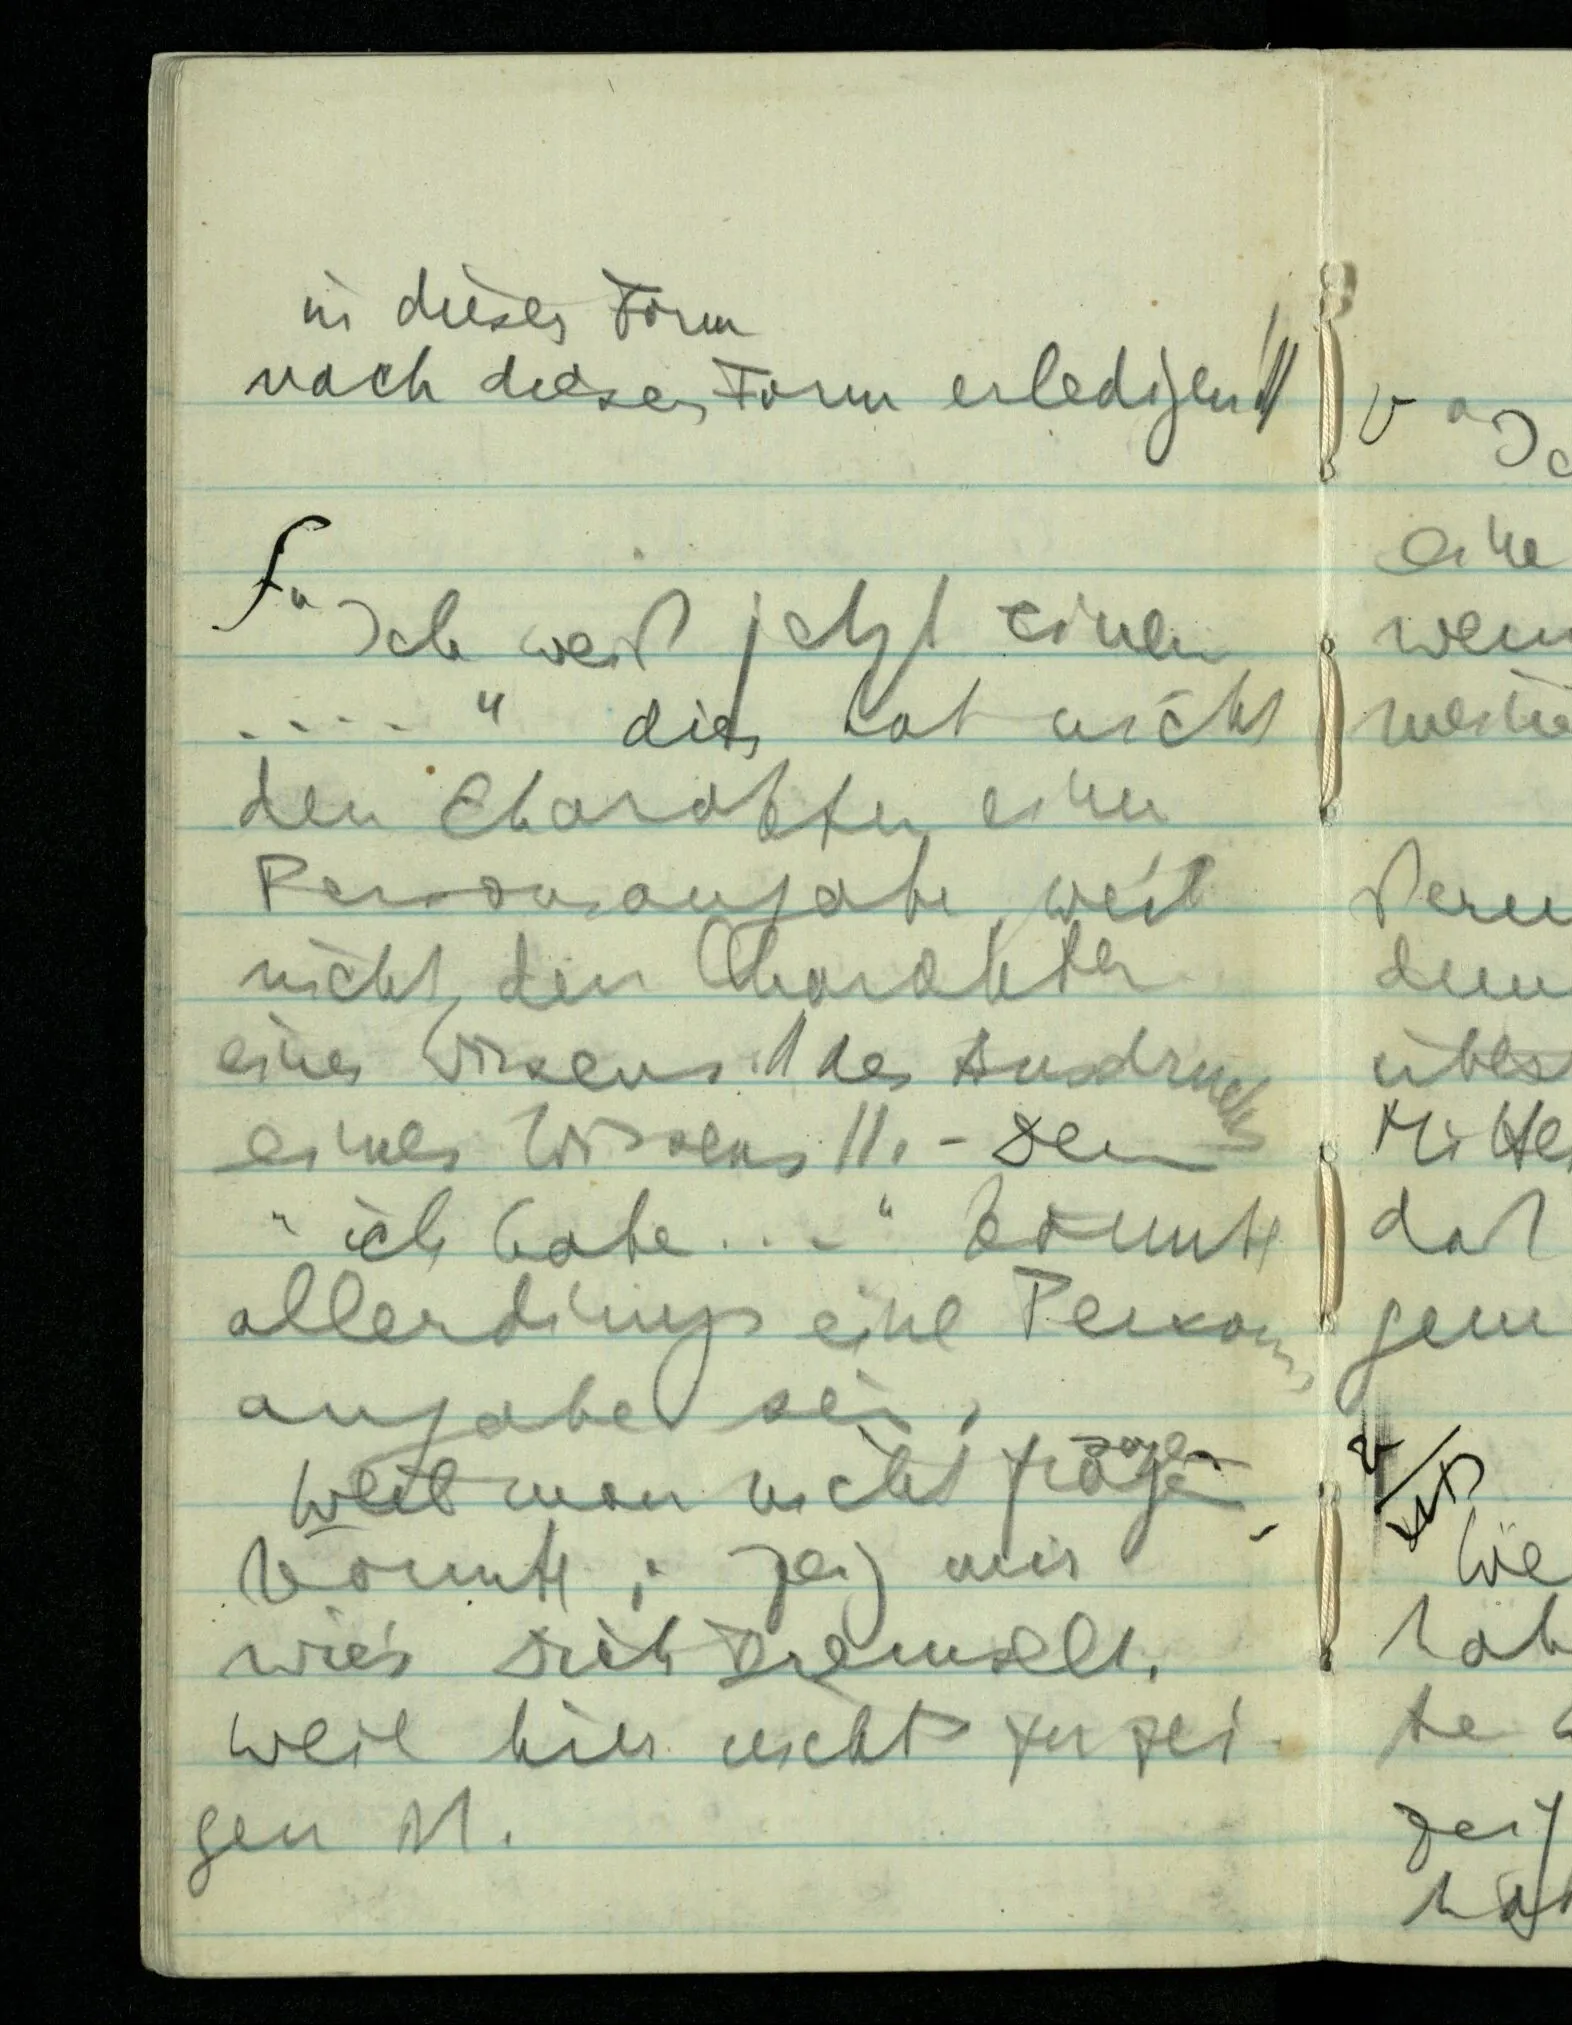 in dieser Form
nach dieser Form erledigen //
f " Ich weiß jetzt einen
. . . . " dies hat nicht
den Charakter einer
Personsangabe, weil
nicht den Charakter
eines Wissens // des Ausdrucks
eines Wissens //. – Dem
" ich habe . . . " könnte
allerdings eine Persons
angabe sein,
sagen
weil man nicht
könnte : zeig mir
wie's Dich
weil hier nichts zu zei-
gen ist.
v " Ic
eine
wen
dem
über
Mittel
daß
hab
te
zeig